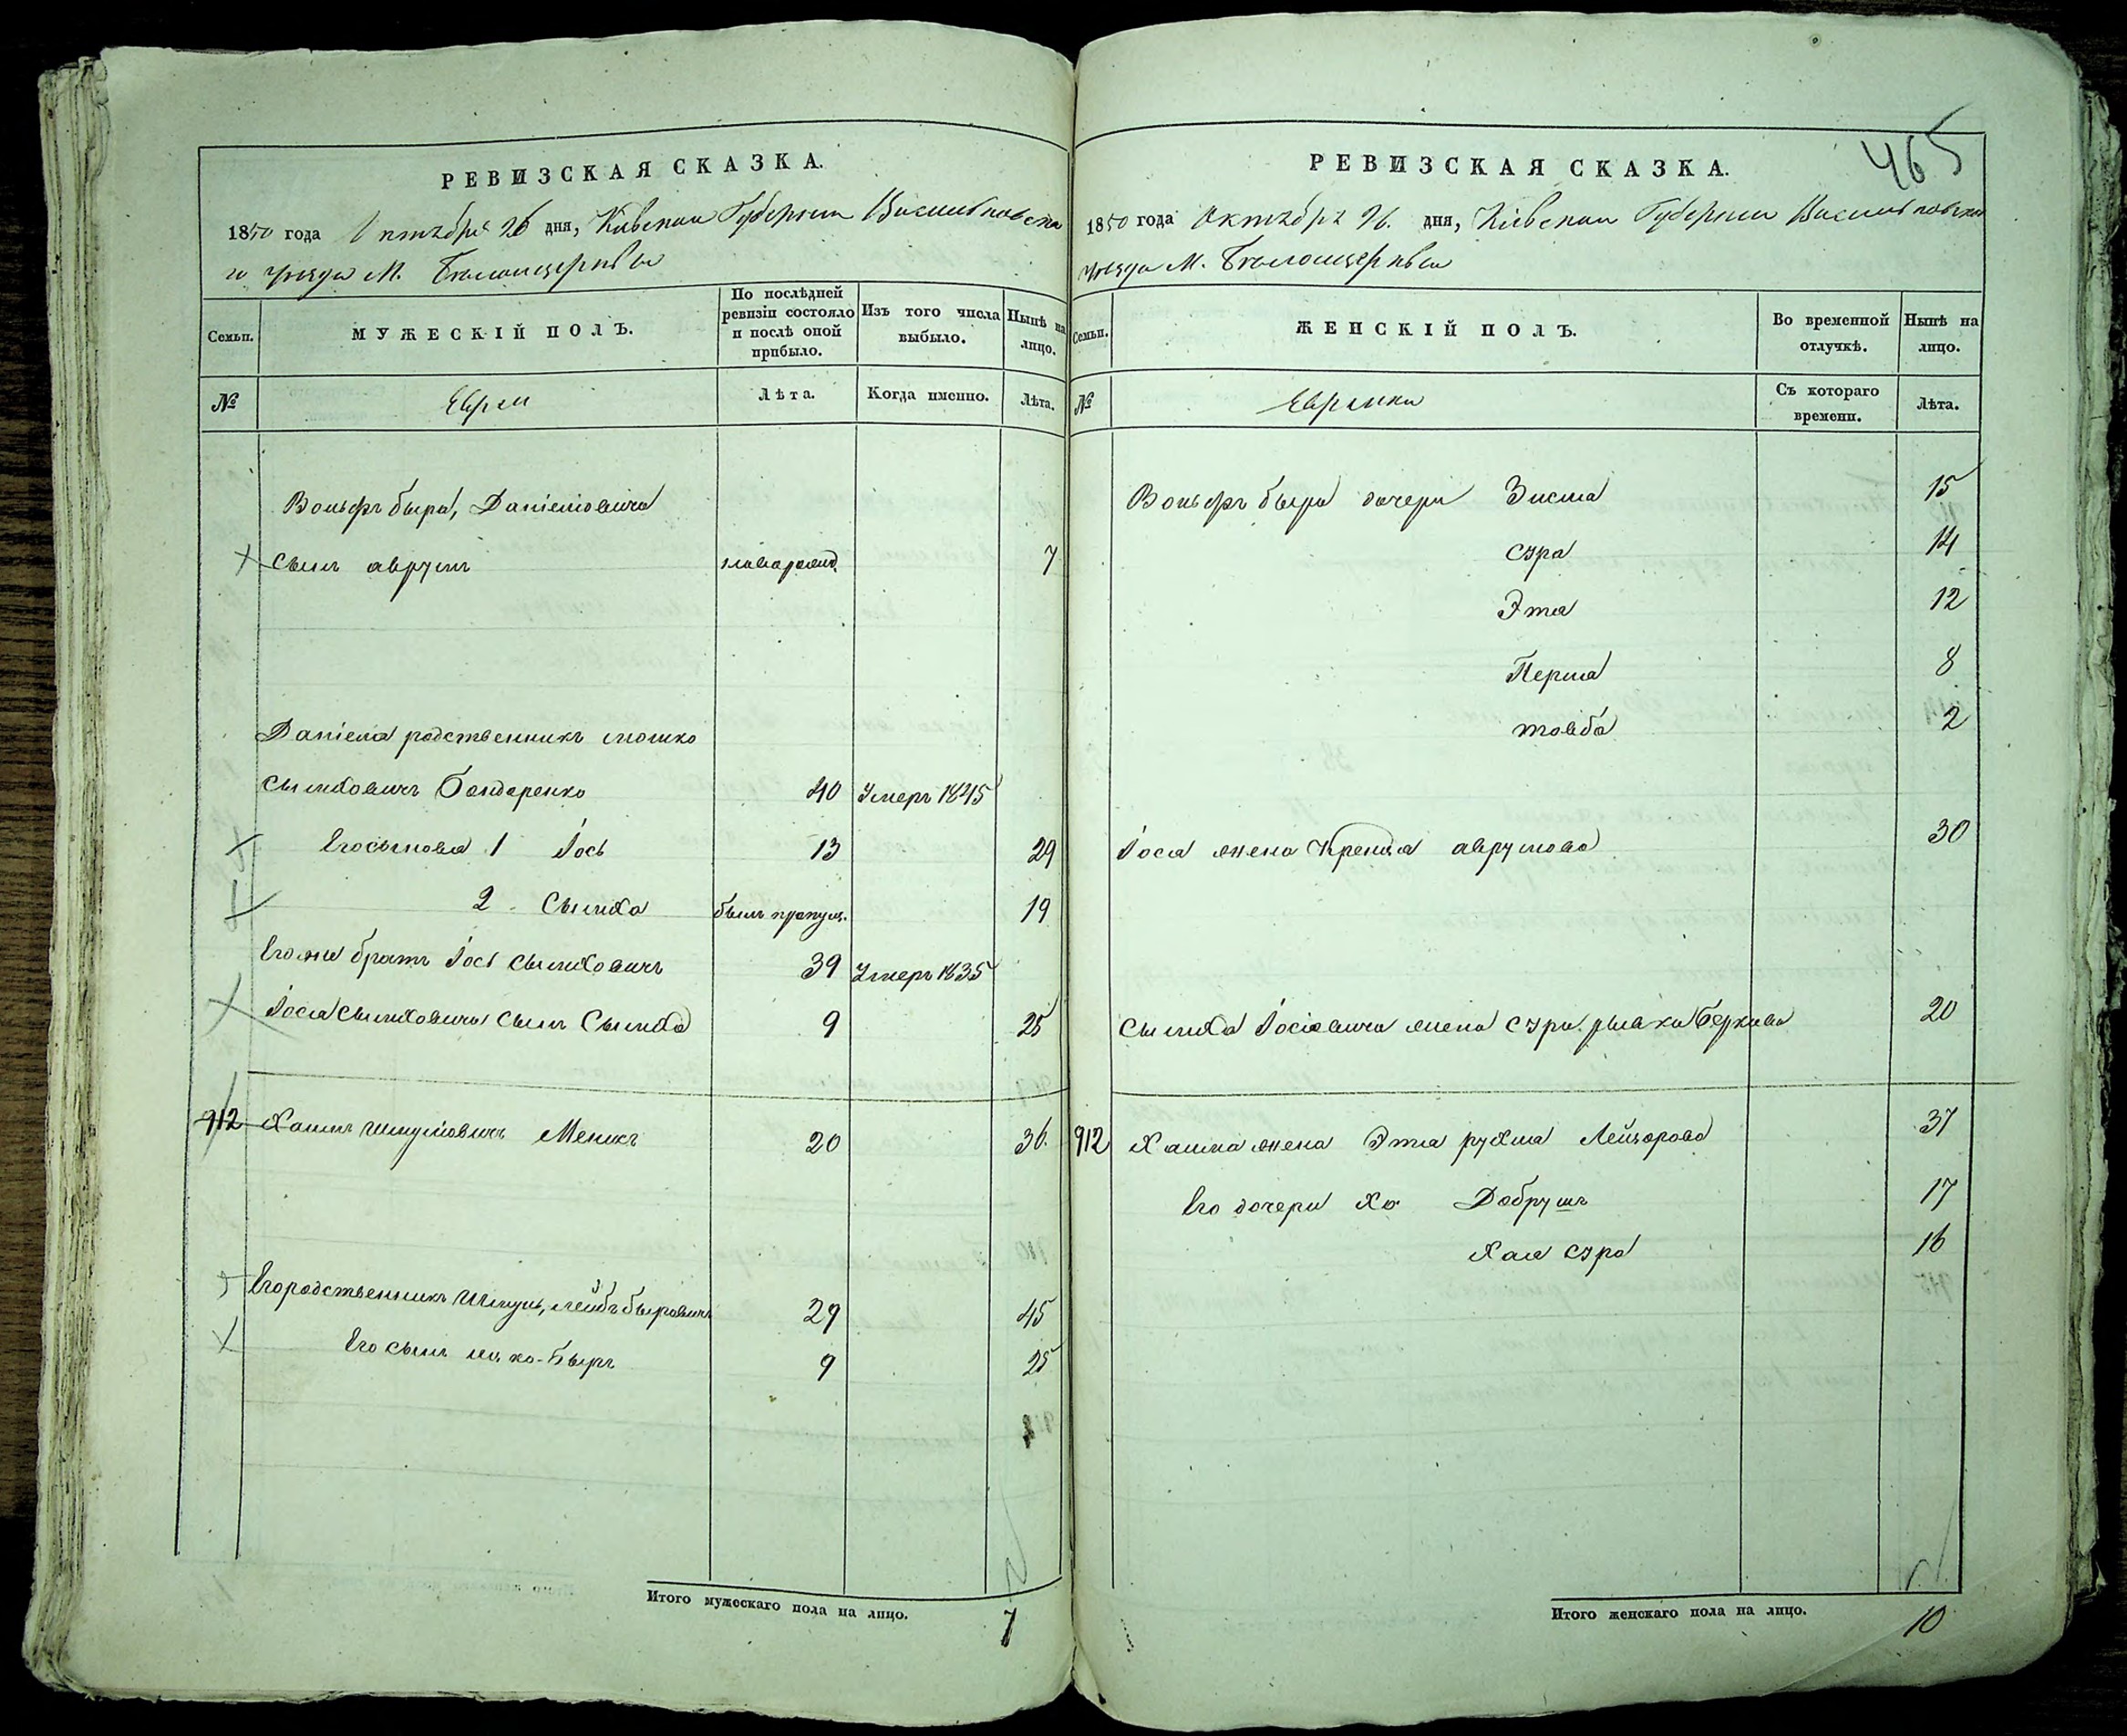 465
РЕВИЗСКАЯ СКАЗКА.
1850 года Октября 26 дня, Кіевской Губерніи Васильковска
го уѣзда М. Бѣлоцерквы
Семьи.
МУЖЕСКІЙ ПОЛЪ.
По послѣдней ревизіи состояло и послѣ оной прибыло.
Изъ того числа выбыло.
Нынѣ на лицо.
№
Евреи
Лѣта.
Когда именно.
Лѣта.
Вольфъ бера, Даніеловича
сынъ аврумъ новорожд. 7
Даніела родственникъ мошко
Сымховичъ Бондаренко 40 Умеръ 1845
Его сыновья 1 Іось 13 29
2 Сымха былъ пропущ. 19
Его же братъ Іось Сымховичъ 39 Умеръ 1835
Іося Сымховича сынъ Сымха 9 25
912 Хаимъ Шмулёвичъ Меникъ 20 36.
Его родственникъ Шмуль, лейбъ беровичъ 29 45
Его сынъ ицко-беръ 9 25
Итого мужескаго пола на лицо. 7
РЕВИЗСКАЯ СКАЗКА.
1850 года Октября 26. дня, Кіевской Губерніи Васильковскаго
уѣзда М. Бѣлоцерквы
Семьи.
ЖЕНСКІЙ ПОЛЪ.
Во временной отлучкѣ.
Нынѣ на лицо.
№
Еврейки
Съ котораго времени.
Лѣта.
Вольфъ бера дочери Зисля 15
Сура 14
Этя 12
Перля 8
товба 2
Іося жена Кренця аврумова 30
Сымха Іосіовича жена Сура рывка Беркова 20
912 Хаима жена Этя рухля Лейзорова 37
Его дочери Хо Добрушъ 17
Хая Сура 16
Итого женскаго пола на лицо. 10